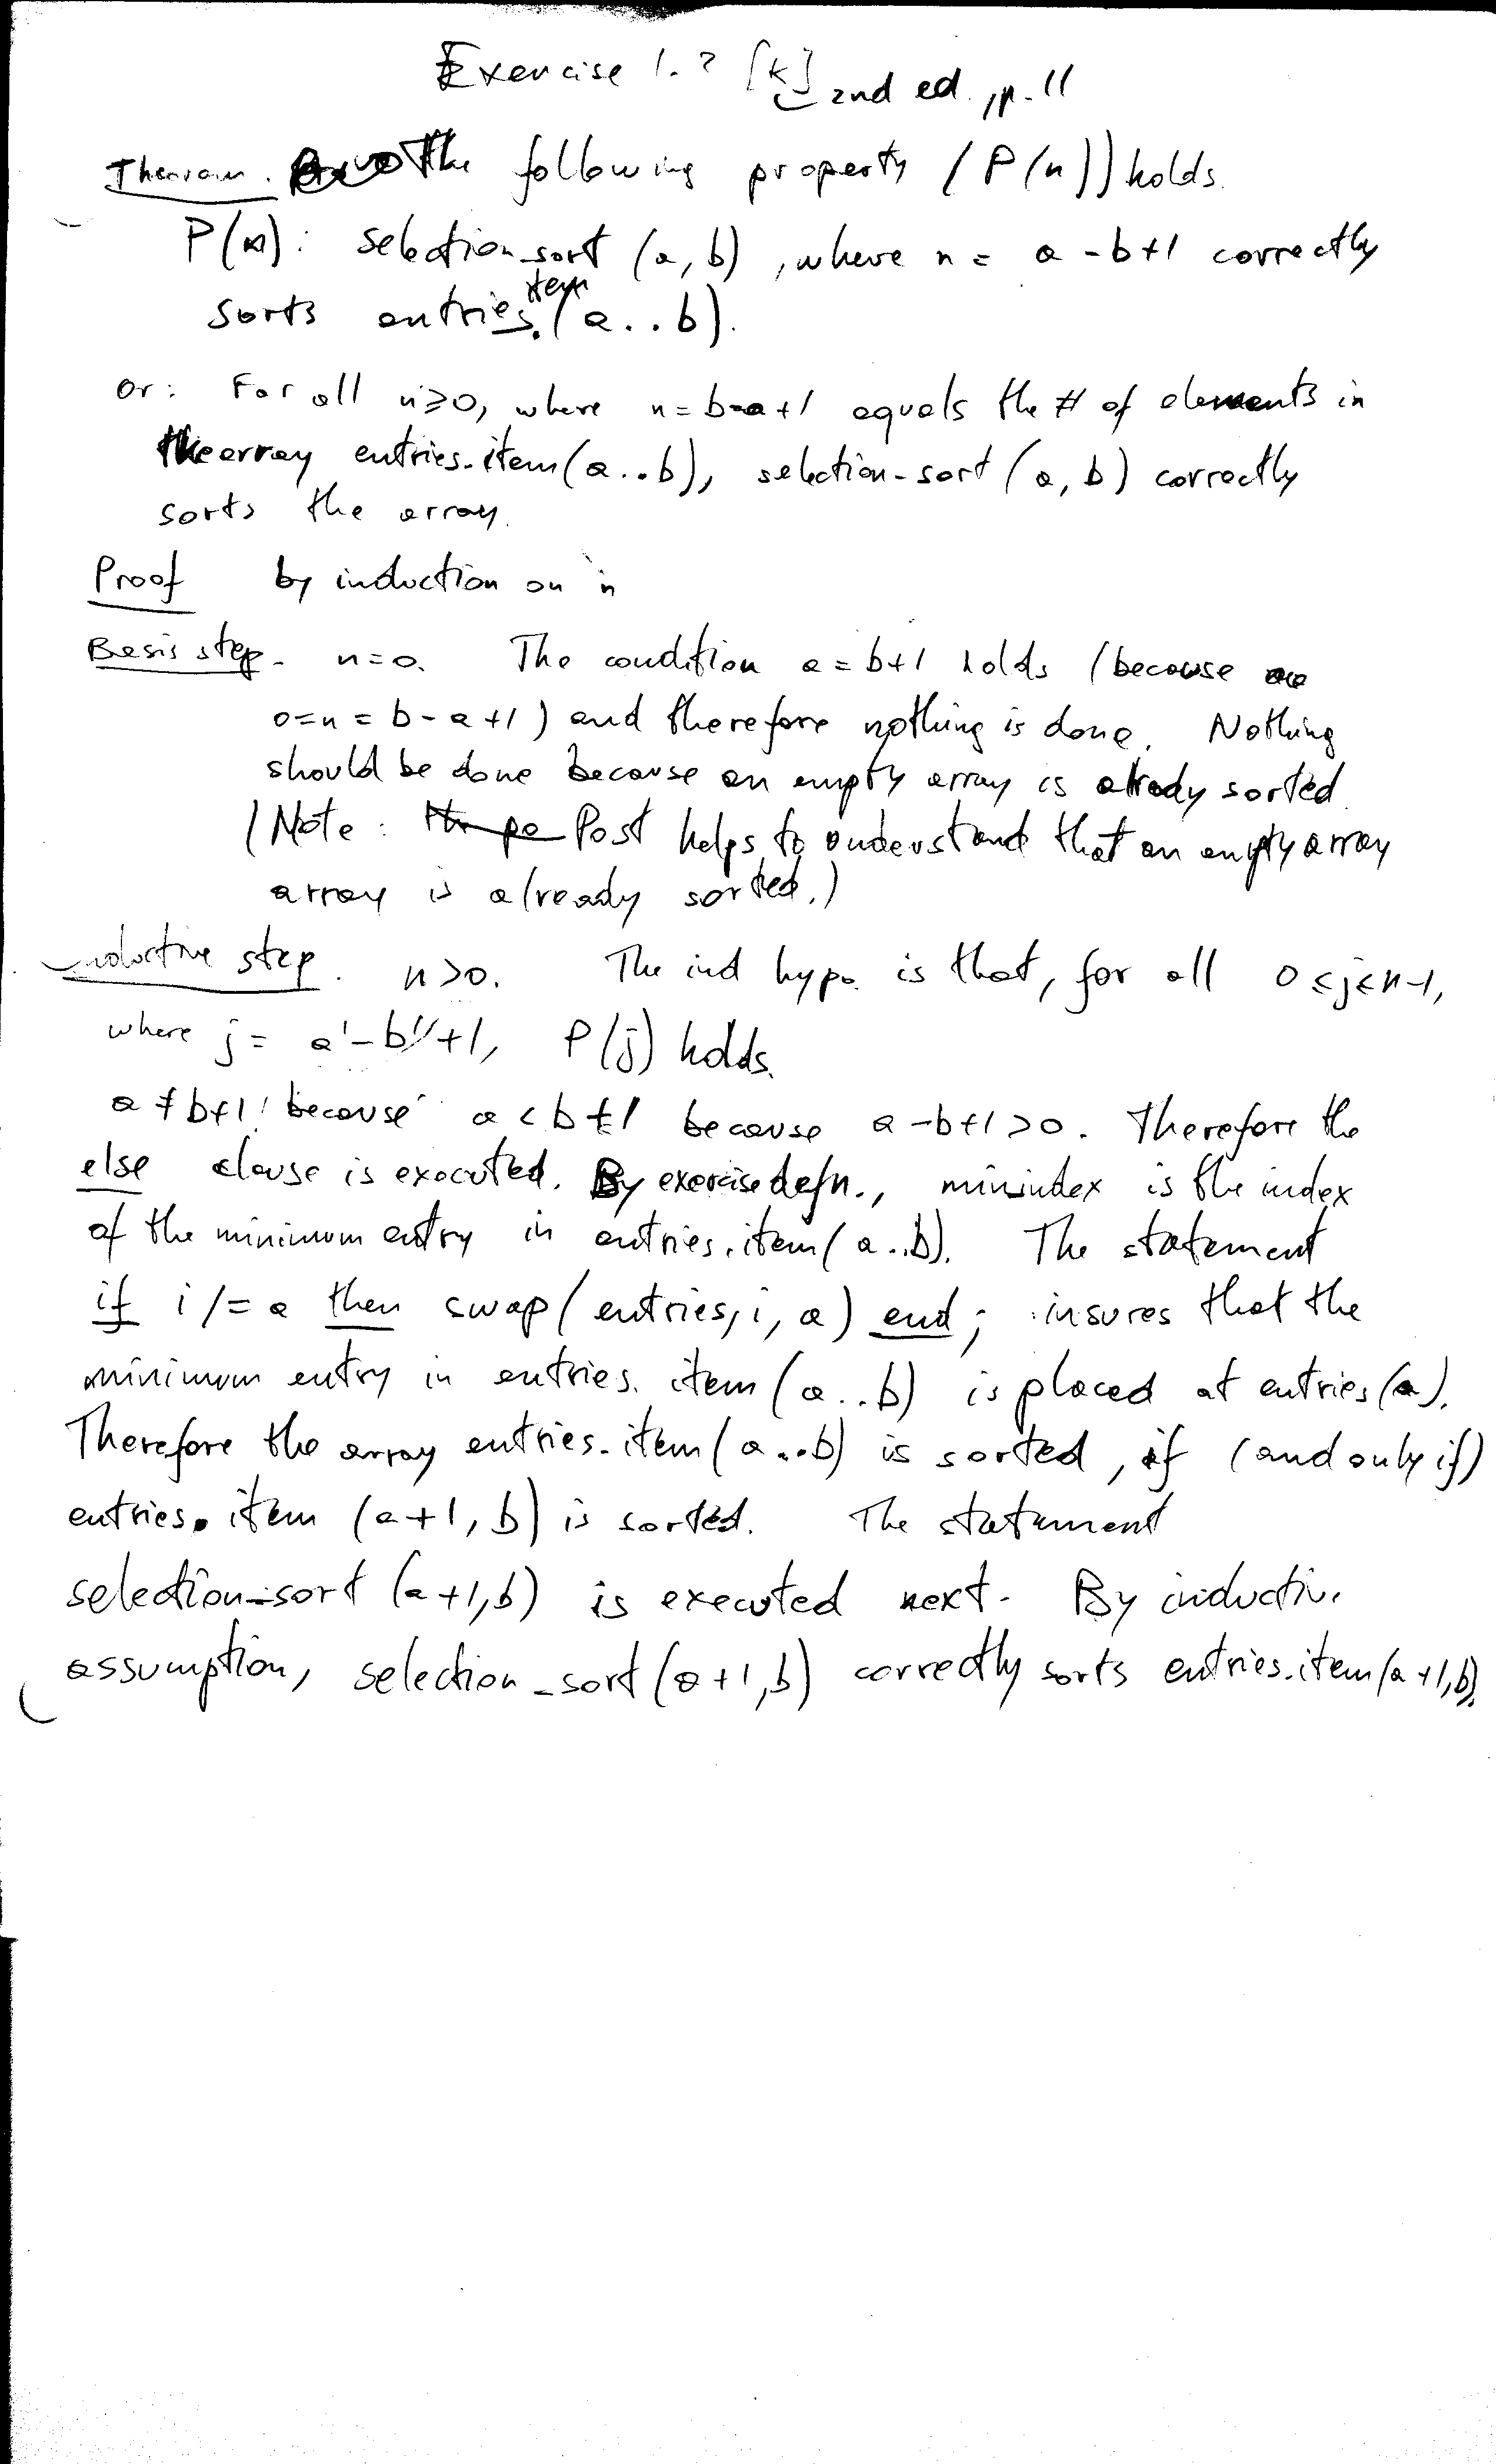 Exercise 1.? [K] 2nd ed., p. 11
Theorem. The following property (P(n)) holds.
P(n): selection_sort (a, b), where n = a - b + 1 correctly
sorts entries.item(a..b).
or: For all n≥0, where n = b-a+1 equals the # of elements in
the array entries.item(a..b), selection-sort (a, b) correctly
sorts the array.
Proof by induction on n
Basis step. n=0. The condition a = b+1 holds (because
0=n = b - a +1) and therefore nothing is done. Nothing
should be done because an empty array is already sorted
(Note: Post helps to understand that an empty array
array is already sorted.)
Inductive step. n>0. The ind hypo is that, for all 0≤j≤n-1,
where j = a'-b'+1, P(j) holds.
a ≠ b+1 because a < b+1 because a-b+1>0. Therefore the
else clause is executed. By exercise defn., minindex is the index
of the minimum entry in entries.item(a..b). The statement
if i /= a then swap(entries, i, a) end; insures that the
minimum entry in entries.item (a..b) is placed at entries(a).
Therefore the array entries.item(a..b) is sorted, if (and only if)
entries.item (a+1, b) is sorted. The statement
selection_sort (a+1,b) is executed next. By inductive
assumption, selection_sort (a+1,b) correctly sorts entries.item(a+1,b).